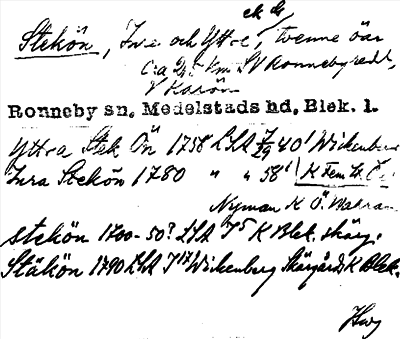 ek ds
Stekön, Inre och Yttre, tvenne öar
c:a 2,5 km SV Ronneby redd,
V Karön
Ronneby sn. Medelstads hd, Blek. l.
Yttra Stek Ön 1758 LSA 40¹ Wickenberg
Inra Stekön 1780 " " 58¹ K
Nyman K Ö.
Stekön 1700-50? LSA J5 K Blek. skärg.
Stäkön 1790 LSA J17 Wickenberg Skärgårds K Blek.